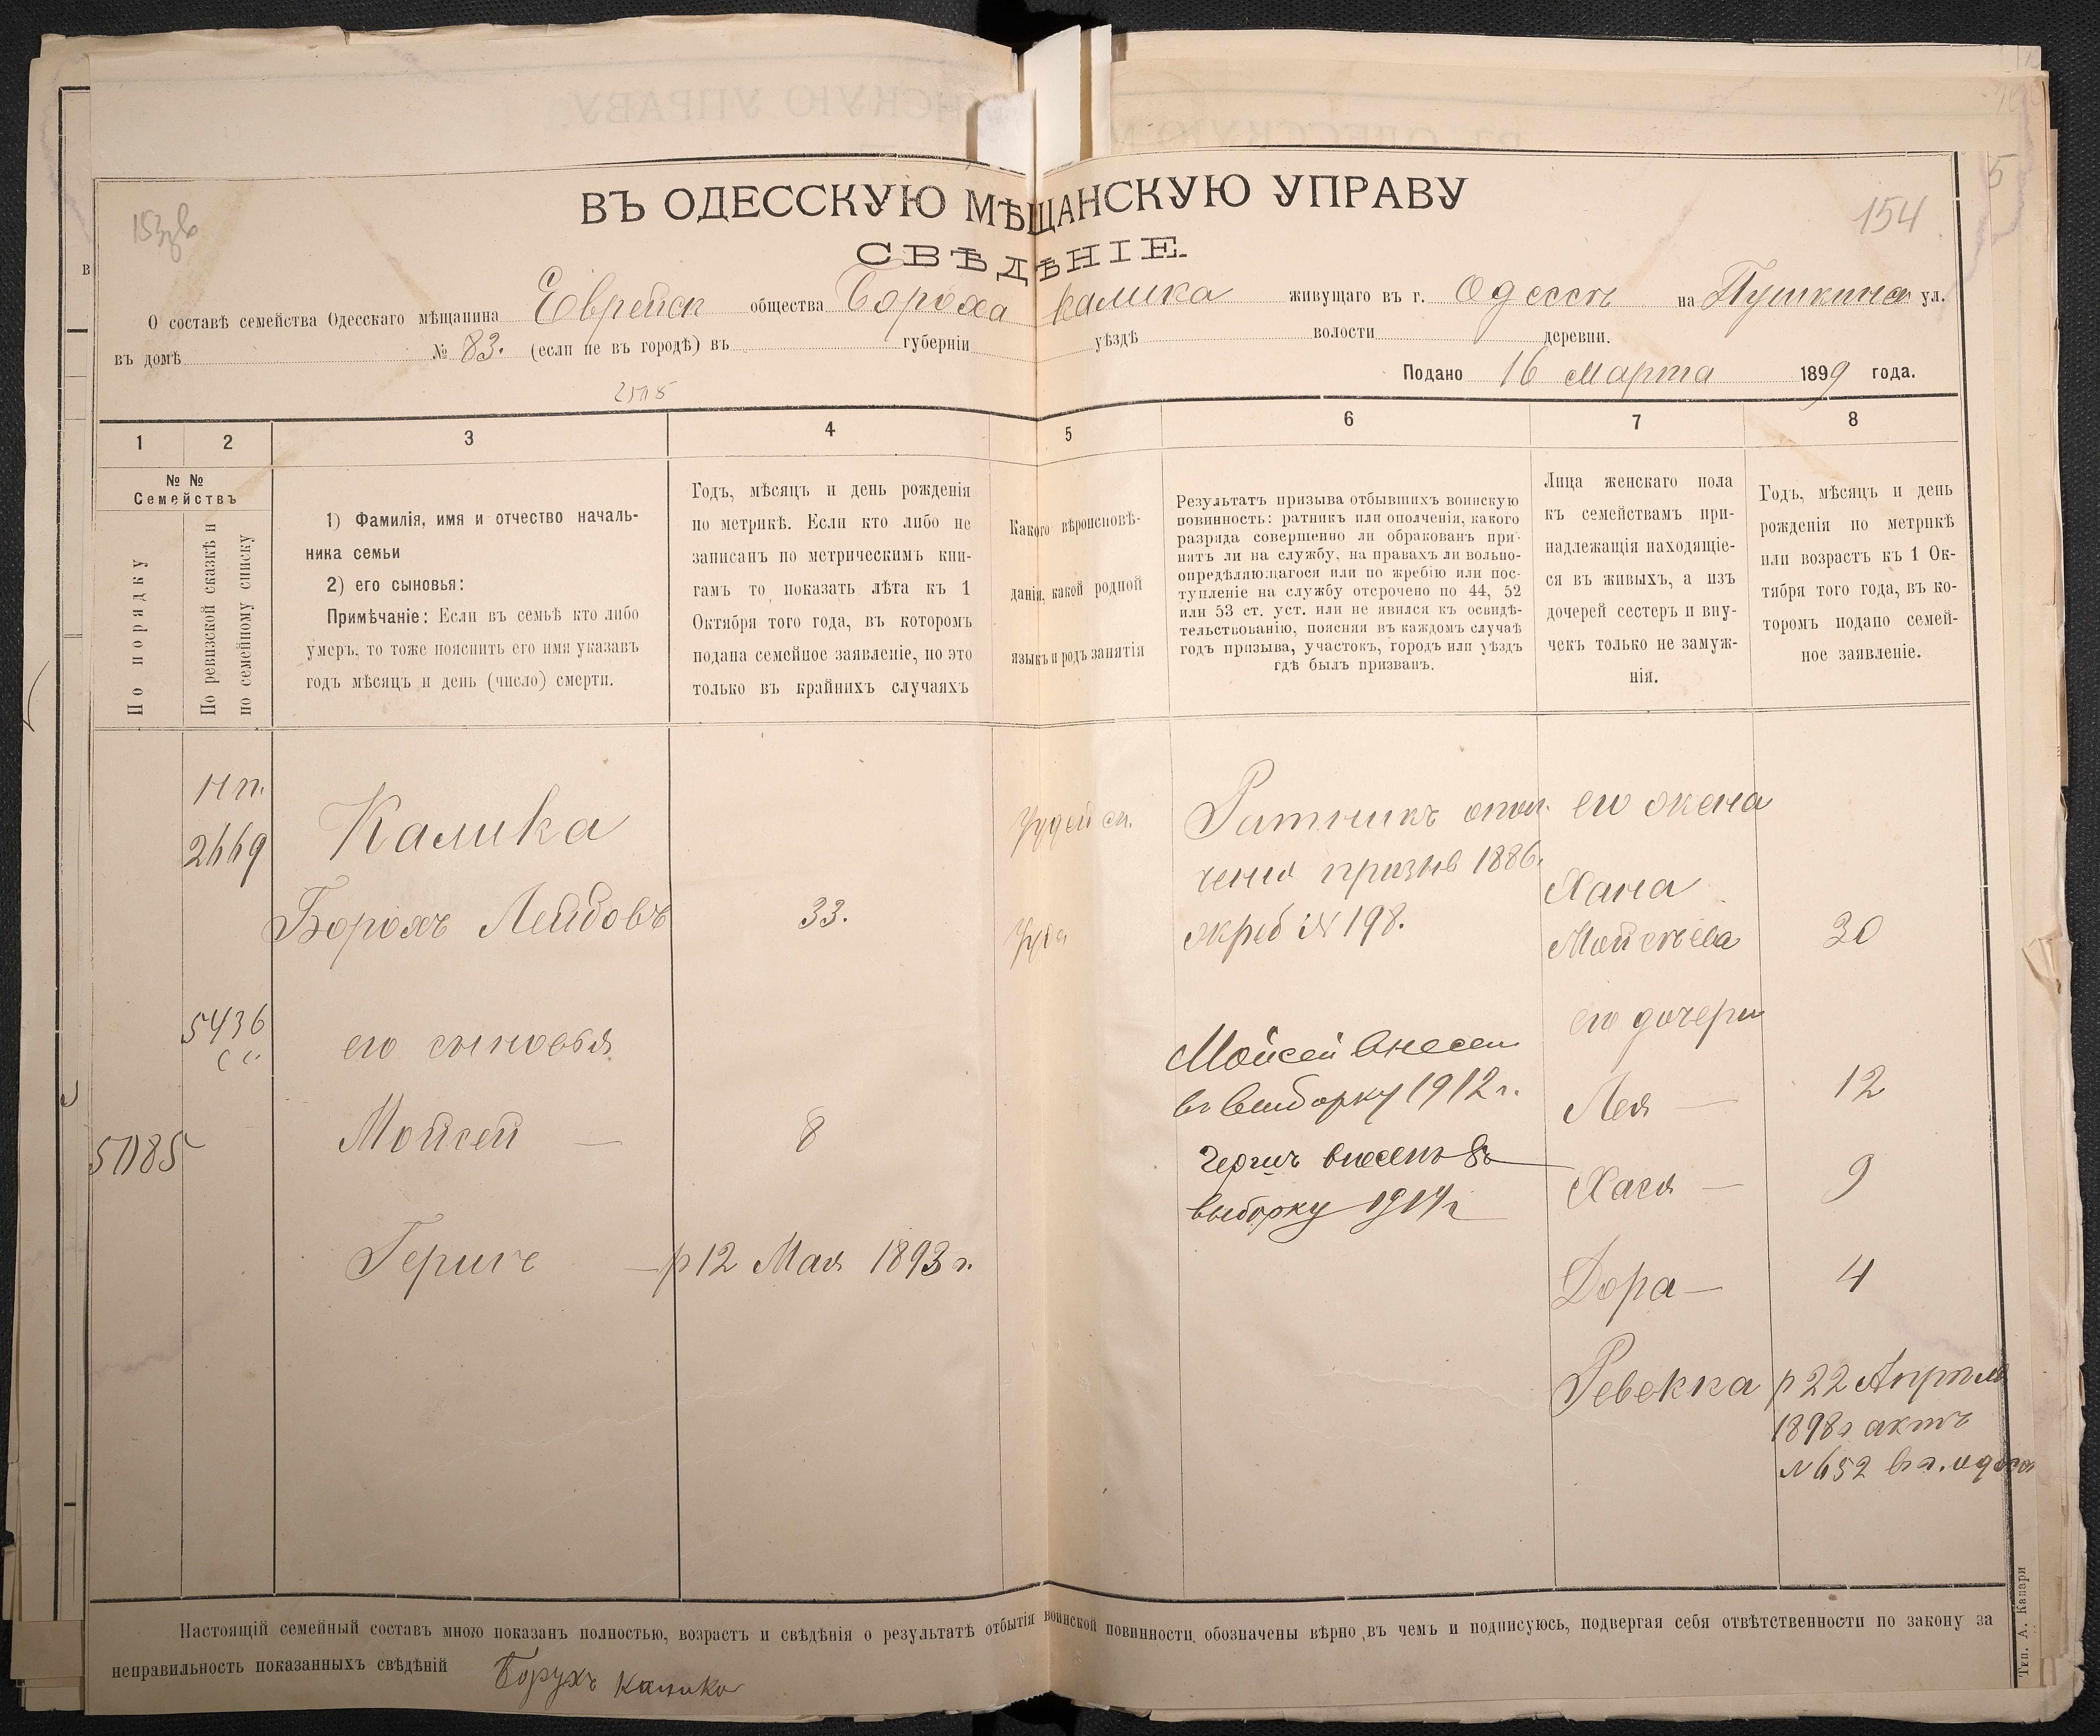 154
ВЪ ОДЕССКУЮ МѢЩАНСКУЮ УПРАВУ
СВѢДѢНІЕ.
О составѣ семейства Одесскаго мѣщанина Еврейск общества Бороха Калика живущаго въ г. Одессѣ на Пушкинс ул.
въ домѣ № 83. (если не въ городѣ) въ губерніи уѣздѣ волости деревни.
Подано 16 Марта 1899 года.
1 2 3 4 5 6 7 8
№ №
Семействъ
По порядку
По ревизской сказкѣ и
по семейному списку
1) Фамилія, имя и отчество началь-
ника семьи
2) его сыновья:
Примѣчаніе: Если въ семьѣ кто либо
умеръ, то тоже пояснить его имя указавъ
годъ мѣсяцъ и день (число) смерти.
Годъ, мѣсяцъ и день рожденія
по метрикѣ. Если кто либо не
записанъ по метрическимъ кни-
гамъ то показать лѣта къ 1
Октября того года, въ которомъ
подана семейное заявленіе, но это
только въ крайнихъ случаяхъ
Какого вѣроисповѣ-
данія, какой родной
языкъ и родъ занятія
Результатъ призыва отбывшихъ воинскую
повинность: ратникъ или ополченія, какого
разряда совершенно ли обракованъ при-
нятъ ли на службу, на правахъ ли вольно-
опредѣляющагося или по жребію или пос-
тупленіе на службу отсрочено по 44, 52
или 53 ст. уст. или не явился къ освидѣ-
тельствованію, поясняя въ каждомъ случаѣ
годъ призыва, участокъ, городъ или уѣздъ
гдѣ былъ призванъ.
Лица женскаго пола
къ семействамъ при-
надлежащія находящіе-
ся въ живыхъ, а изъ
дочерей сестеръ и вну-
чекъ только не замуж-
нія.
Годъ, мѣсяцъ и день
рожденія по метрикѣ
или возрастъ къ 1 Ок-
тября того года, въ ко-
торомъ подано семей-
ное заявленіе.
2669
Калика
Борохъ Лейбовъ
33.
Іудейск.
Ратникъ опол
ченія призыв 1886г
жреб № 198.
его жена
Хана
Мойсѣева
30
5436
его сыновья
его дочери
Мойсей внесен
въ выборку 1912 г.
Мойсей —
8
Лея —
12
Герши внесенъ въ
выборку 1914г
Хася —
9
Герши — р 12 Мая 1893 г.
Дора —
4
Ревекка
р 22 Апрѣля
1898г актъ
№ 652 въ г. Одессѣ
Настоящій семейный составъ мною показанъ полностью, возрастъ и свѣдѣнія о результатѣ отбытія воинской повинности обозначены вѣрно, въ чемъ и подписуюсь, подвергая себя отвѣтственности по закону за
неправильность показанныхъ свѣдѣній Борухъ Калика
Тип. А. Капари